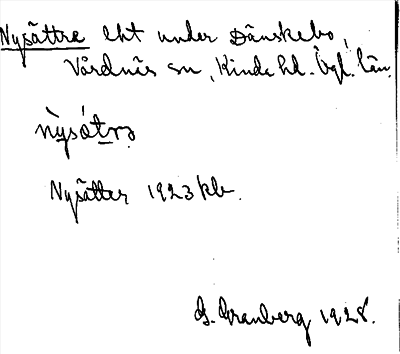 Nysättra lht under Dänskebo,
Vårdnäs sn, Kinda hd. Ögl. län.
nỳsátrɔ
Nysätter 1923 kb.
G. Granberg 1928.